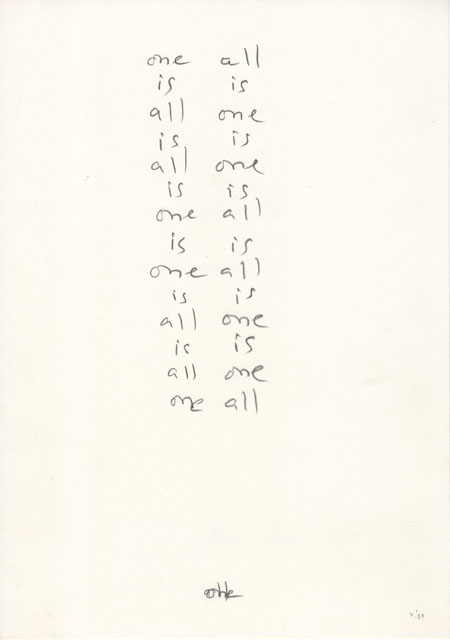 one all
is is
all one
is is
all one
is is
one all
is is
one all
is is
all one
is is
all one
one all